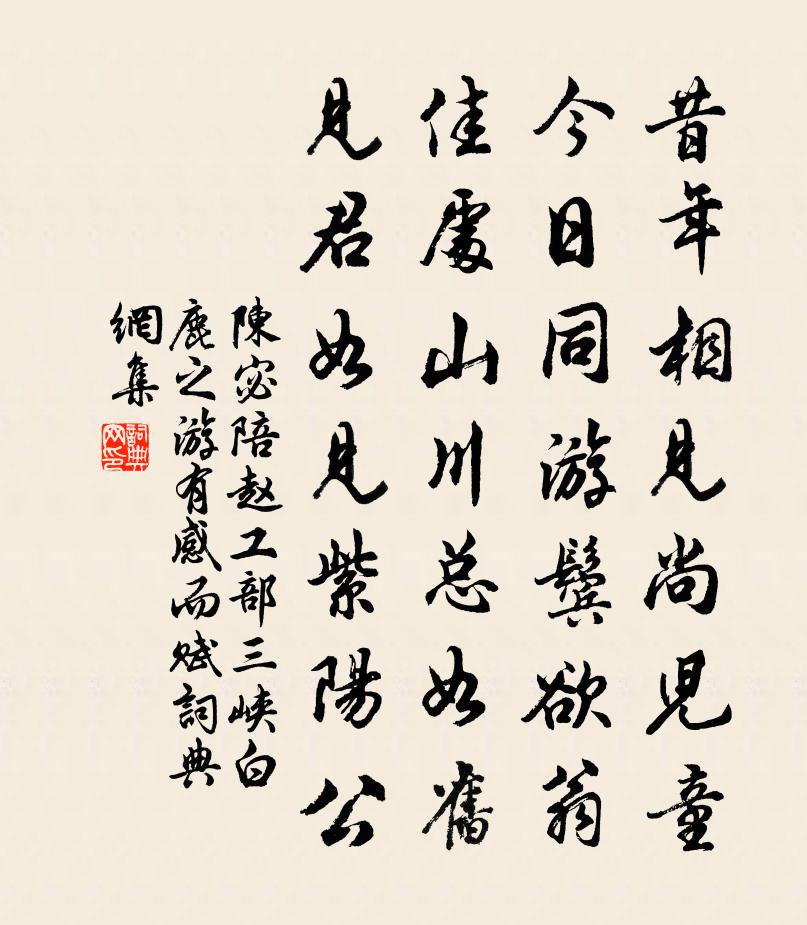 昔年相見尚児童
今日同游鬓欲翁
佳處山川总如舊
見君如見紫陽公
陳宓陪赵工部三峡白
鹿之游有感而赋詞典
網集
詞典网印